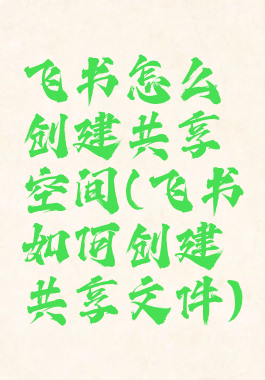 飞书怎么
创建共享
空间(飞书
如何创建
共享文件)